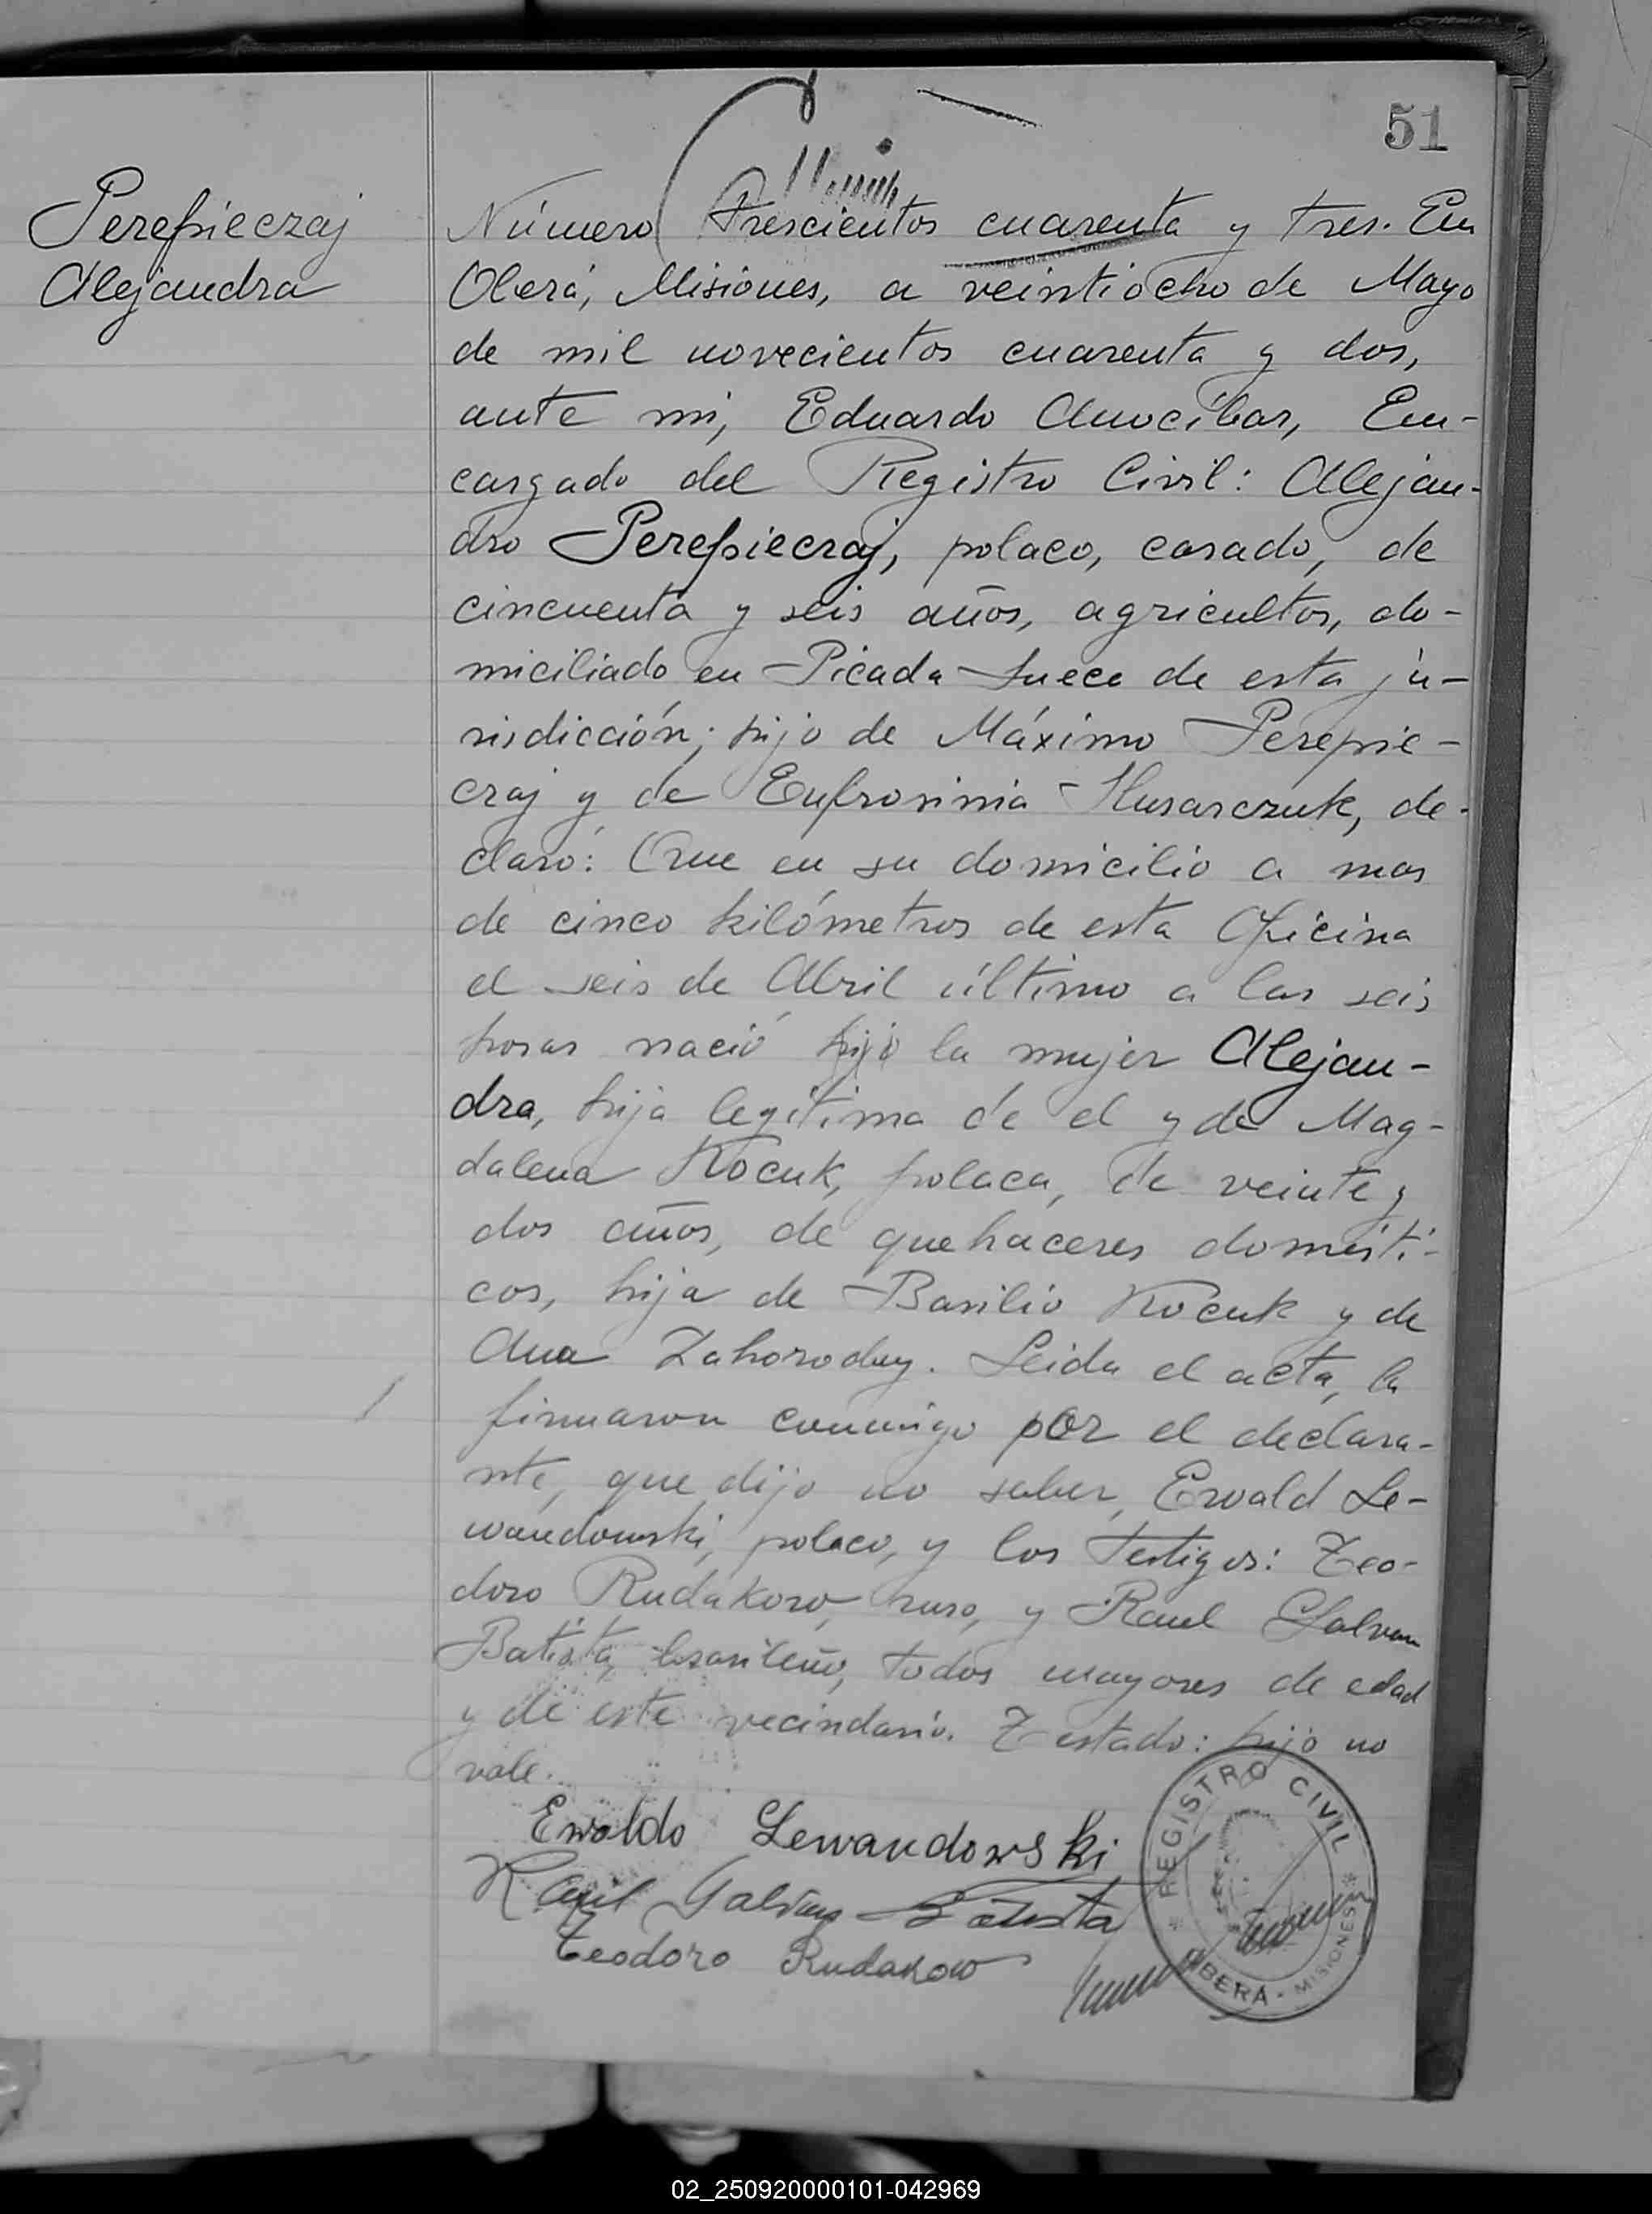 51
Perepieczaj
Alejandra
Número trescientos cuarenta y tres. En
Oberá, Misiones, a veintiocho de Mayo
de mil novecientos cuarenta y dos,
ante mi, Eduardo Amocíbar, En-
cargado del Registro Civil: Alejan-
dro Perepiecraj, polaco, casado, de
cincuenta y seis años, agricultor, do-
miciliado en Picada Sueca de esta ju-
risdicción; hijo de Máximo Perepie-
craj y de Eufrosinia Husarczuk, de-
claro: Que en su domicilio a mas
de cinco kilómetros de esta Oficina
el seis de Abril último a las seis
horas nació hijo la mujer Alejan-
dra, hija legítima de el y de Mag-
dalena Kocuk, polaca, de veinte y
dos años, de quehaceres domésti-
cos, hija de Basilio Kocuk y de
Ana Zahorodny. Leida el acta, la
firmaron conmigo por el declara-
nte, que dijo no saber, Ewald Le-
wandowski, polaco, y los testigos: Teo-
doro Rudakow, ruso, y Raul Galvan
Batista, brasileño, todos mayores de edad
y de este vecindario. Testado: hijo no
vale.
Ewaldo Lewandowski
Raul Galvan Batista
Teodoro Rudakow
REGISTRO CIVIL
OBERÁ - MISIONES
02_250920000101-042969